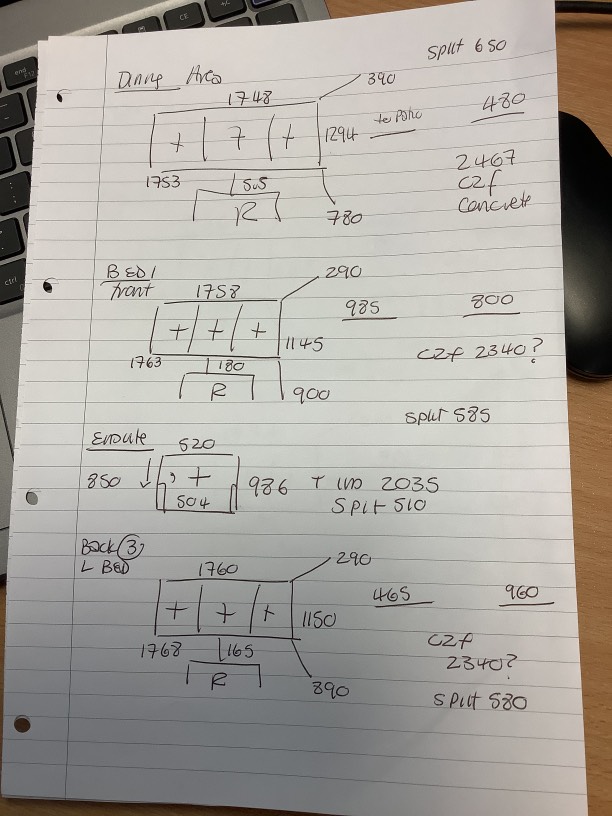 Split 650
Dining Area
390
1748
1294
to patio
480
+ 7 +
2467
C2f
Concrete
1753
505
R
780
BED 1
front
1758
290
985
800
+ + +
1145
C2f 2340?
1763
180
R
900
Split 585
Ensuite
520
850
, +
986
2035
504
Split 510
Back 3
L BED
1760
290
465
960
+ + +
1150
C2f
2340?
1768
165
R
890
Split 580
ctrl